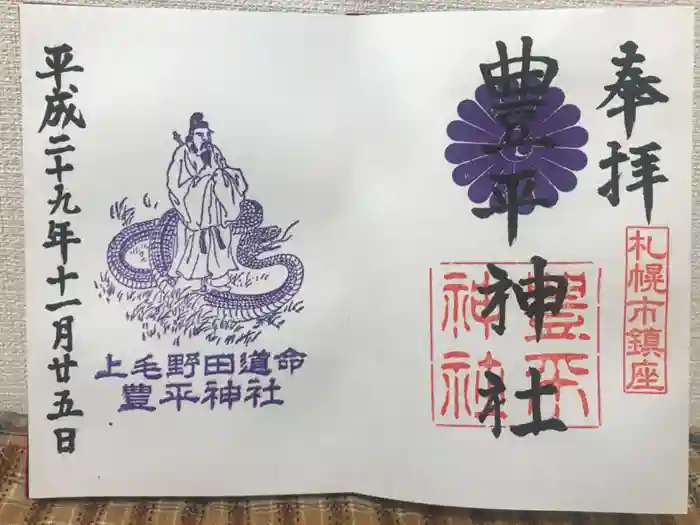 奉拝
札幌市鎮座
豊平神社
豊平神社
平成二十九年十一月廿五日
上毛野田道命
豊平神社